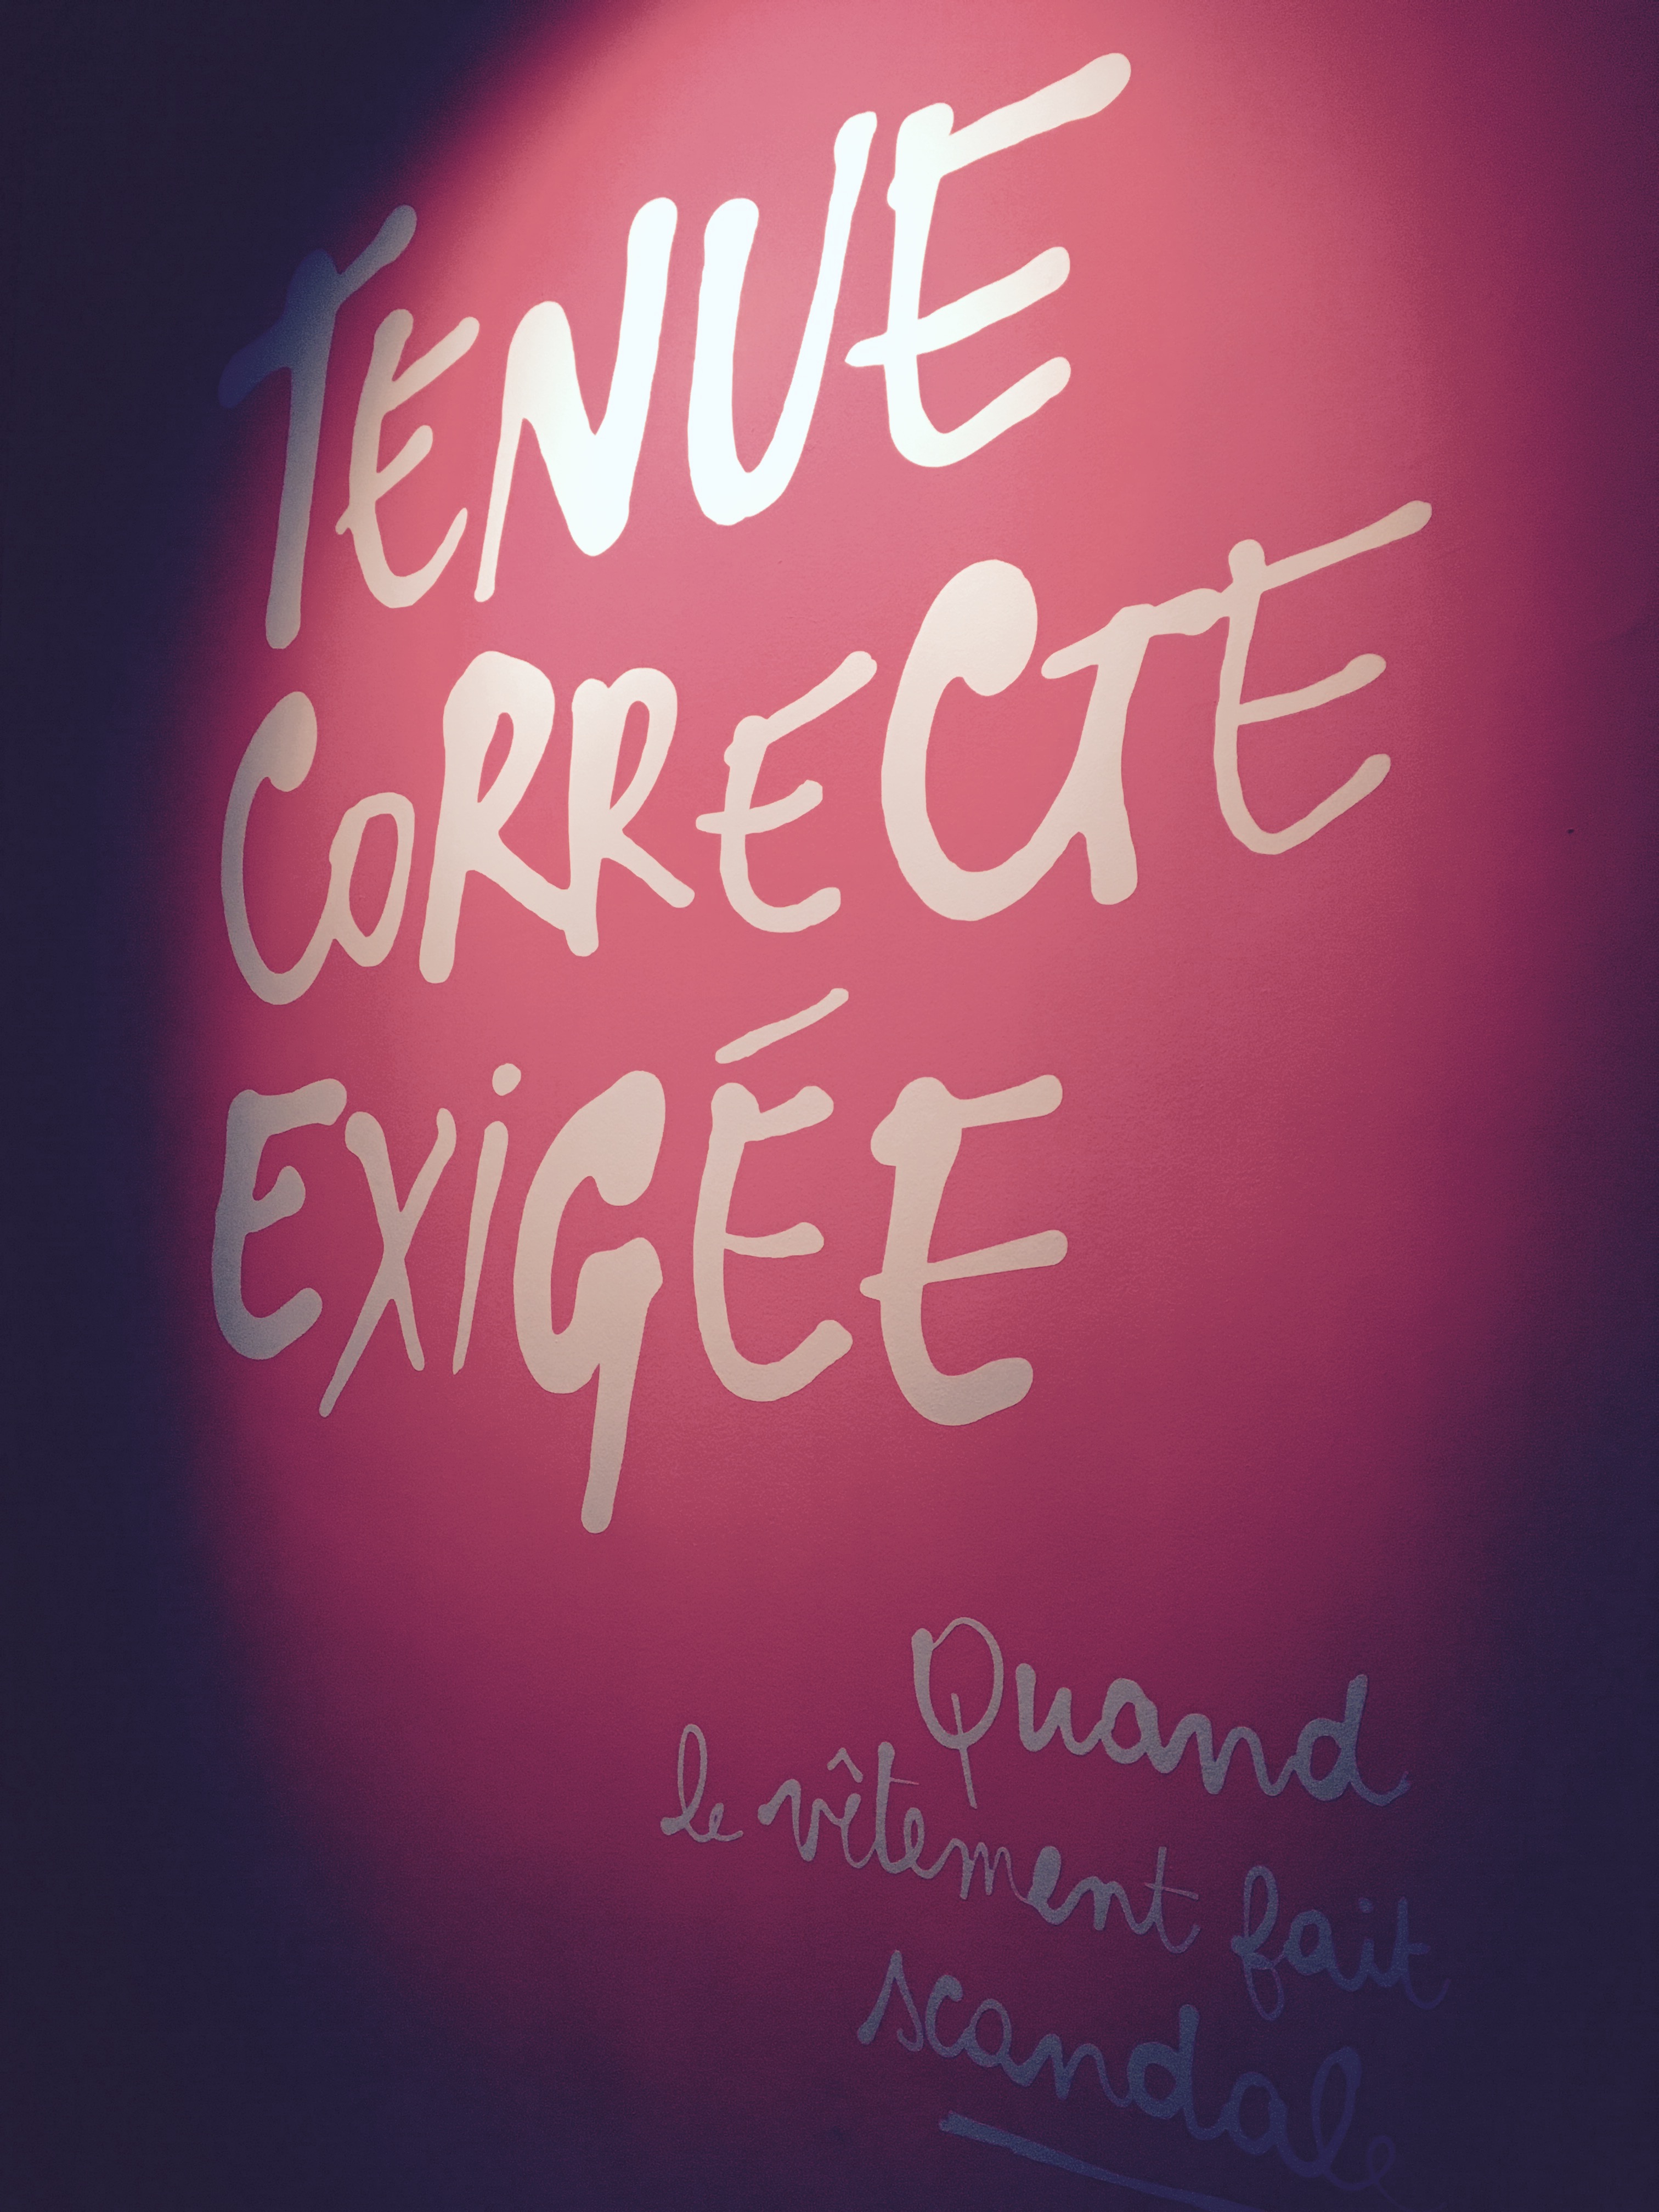 TENUE
CORRECTE
EXiGÉE
Quand
le vêtement fait
scandale